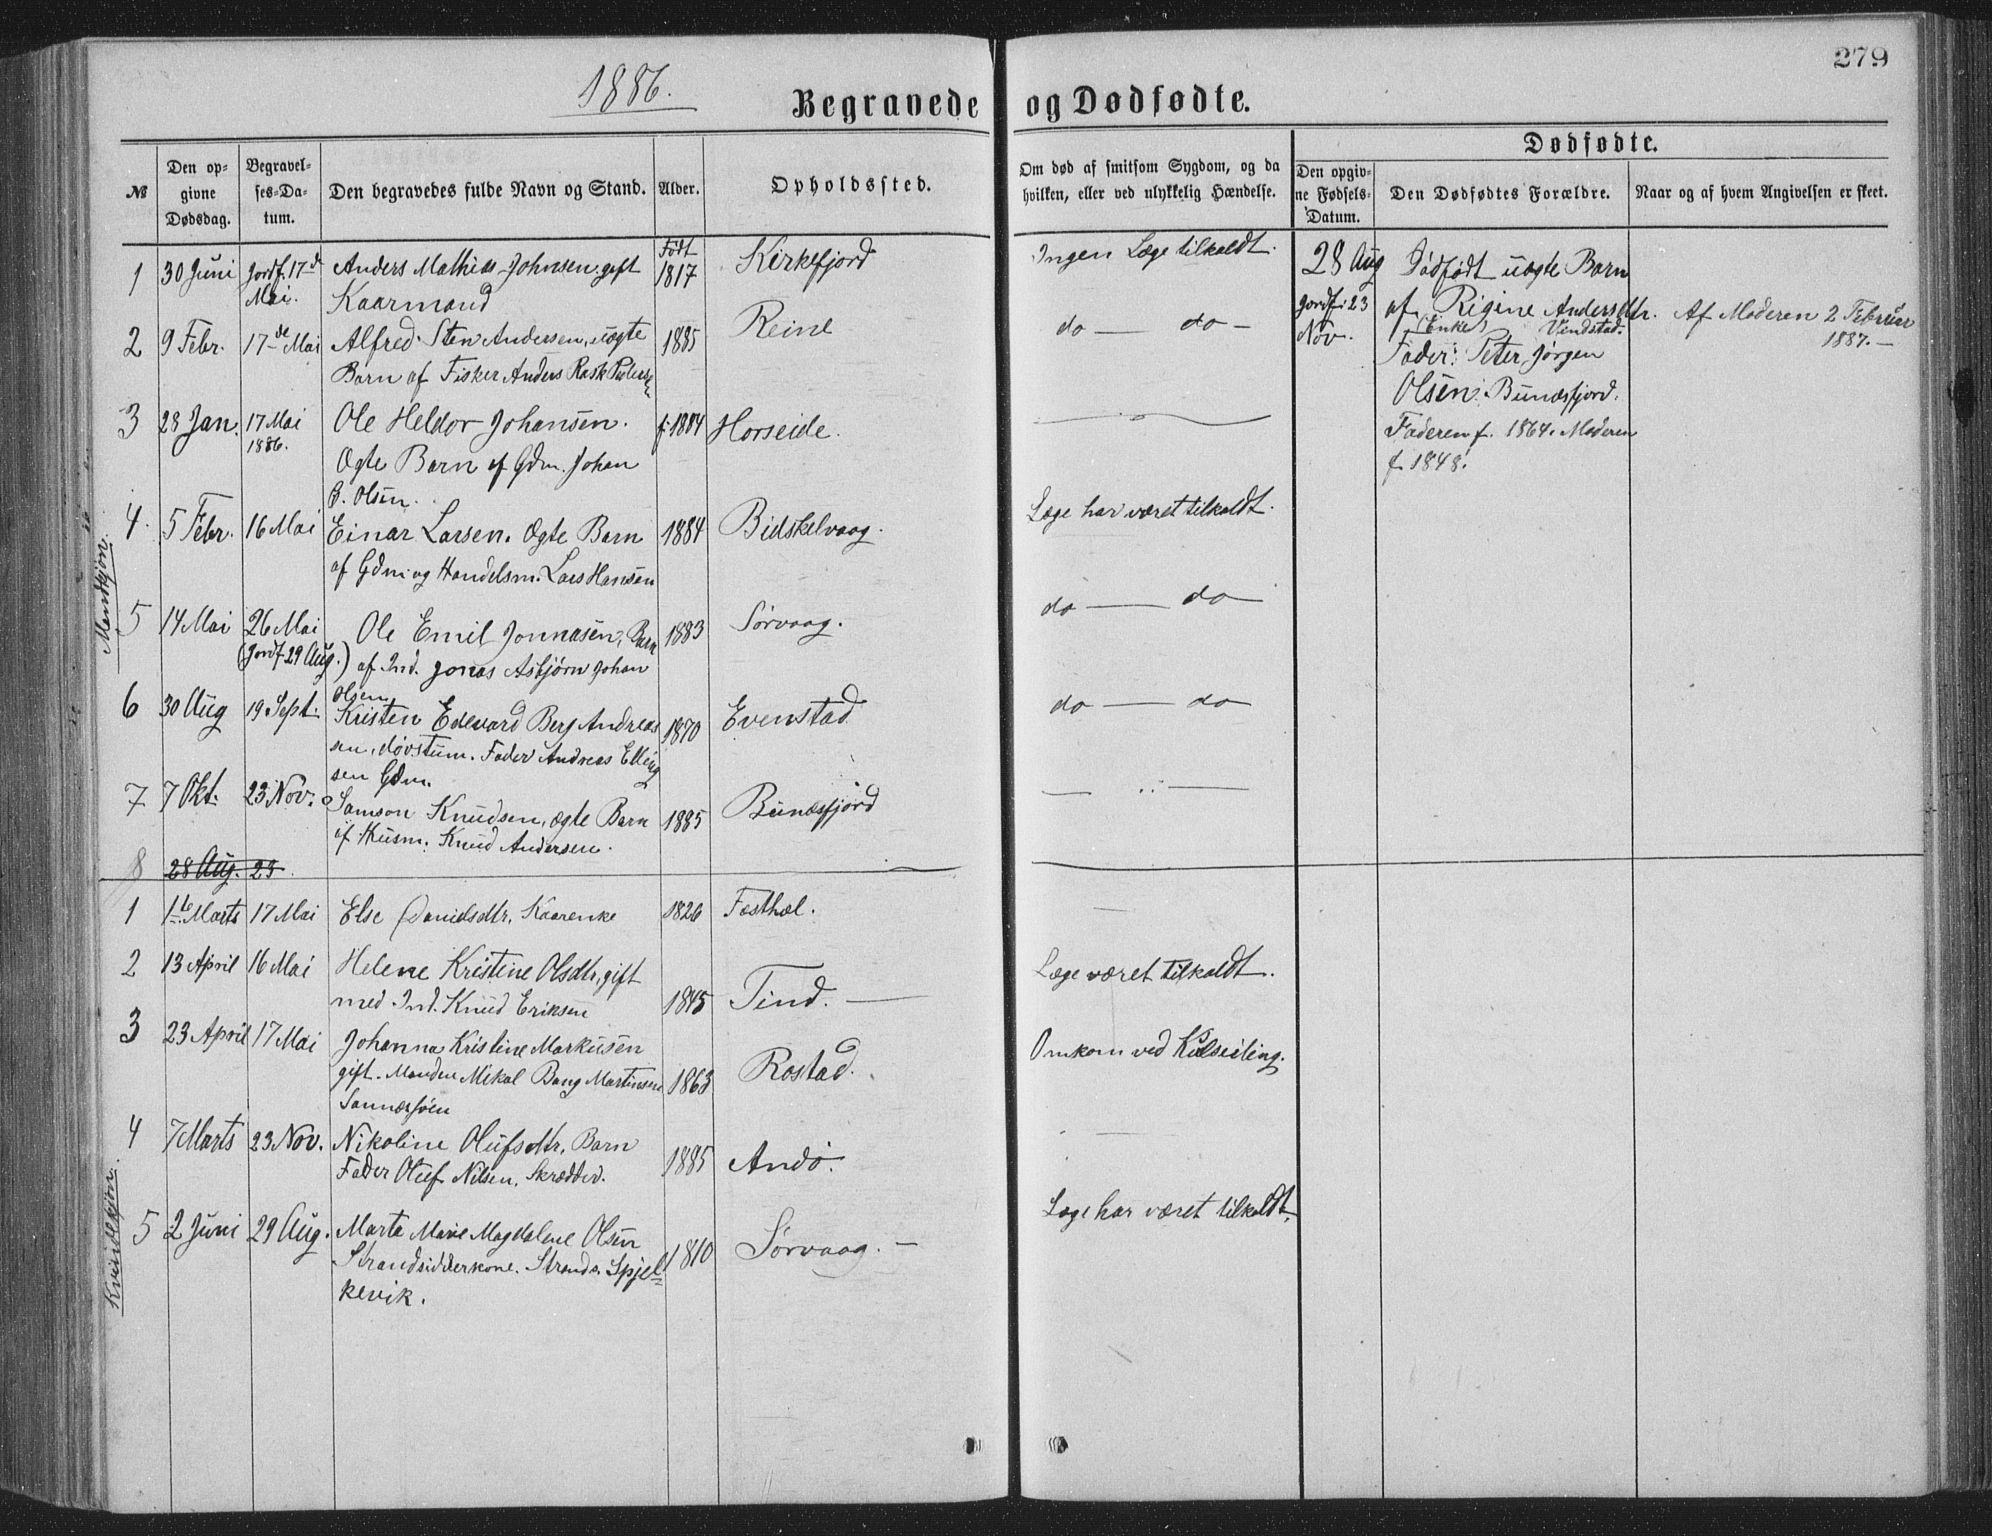 279
1886.
Begravede og Dødfødte.
Dødfødte.
№
Den op-
givne
Dødsdag.
Begravel-
ses-Da-
tum.
Den begravedes fulde Navn og Stand.
Alder.
Opholdssted.
Om død af smitsom Sygdom, og da
hvilken, eller ved ulykkelig Hændelse.
Den opgiv-
ne Fødsels-
Datum.
Den Dødfødtes Forældre.
Naar og af hvem Angivelsen er skeet.
Mandkjøn.
1 30 Juni Jordf. 17d Anders Mathias Johnsen gift Født 1817 Kirkefjord Ingen Læge tilkaldt.
Mai. Kaarmand
2 9 Febr. 17de Mai Alfred Sten Andersen, uægte 1885 Reine do — do —
Barn af Fisker Anders Rask Peders
3 28 Jan. 17 Mai Ole Heldor Johansen. f. 1884 Horseide.
1886. Ægte Barn af Gdm. Johan
Olsen.
4. 5 Febr. 16 Mai Einar Larsen. Ægte Barn 1884 Bidskelvaag. Læge har været tilkaldt.
af Gdm. og Handelsm. Lars Hansen
5 14 Mai 26 Mai Ole Emil Jonnasen, Barn 1883 Sørvaag. do — do
(Jordf 29 Aug.) af Ind. Jonas Asbjørn Johan
Olsen
6 30 Aug 19 Sept. Kristen Edevard Berg Andreas 1870 Evenstad do — do
sen, døvstum. Fader Andreas Elling
sen Gdm.
7 7 Okt. 23 Nov. Samson Knudsen, ægte Barn 1885 Bunæsfjord — " —
af Husm. Knud Andersen.
8 28 Aug. 23
Kvindekjøn.
1 1te Marts 17 Mai Else Danielsdtr. Kaarenke 1826 Fæsthæl. —
2 13 April 16 Mai Helene Kristine Olsdtr, gift 1845 Tind. — Læge været tilkaldt.
med Ind. Knud Eriksen
3 23 April 17 Mai Johanna Kristine Markusen 1863 Rostad. Omkom ved Kulseiling.
gift. Manden Mikal Bang Martinsen
Sannæssøen
4 7 Marts 23 Nov. Nikoline Olufsdtr. Barn 1885 Andø. —
Fader Oluf Nilsen. Skrædder.
5 2 Juni 29 Aug. Marta Marie Magdalene Olsen 1810 Sørvaag. — Læge har været tilkaldt.
Strandsidderkone. Strands. Spjel=
kevik.
28 Aug Dødfødt uægte Barn
Jordf. 23 af Rigine Andersdtr. Af Moderen 2 Februar
Nov. (Enke) Vindstad. 1887. —
Fader: Peter Jørgen
Olsen Bunæsfjord.
Faderen f. 1864. Moderen
f. 1848.